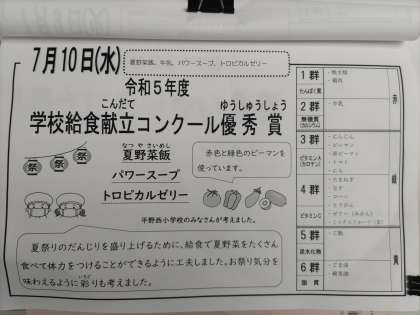 7月10日(水)
夏野菜飯、牛乳、パワースープ、トロピカルゼリー
令和5年度
こんだて ゆうしゅうしょう
学校給食献立コンクール優秀賞
祭 祭 祭
なつ や さいめし
夏野菜飯
パワースープ
トロピカルゼリー
赤色と緑色のピーマンを
使っています。
平野西小学校のみなさんが考えました。
夏祭りのだんじりを盛り上げるために、給食で夏野菜をたくさん
食べて体力をつけることができるように工夫しました。お祭り気分を
いろど
味わえるように彩りも考えました。
1群
たんぱく質
2群
無機質
(カルシウム)
・牛乳
赤
3群
ビタミンA
(カロテン)
・にんじん
・ピーマン
・トマト
4群
ビタミンC
・たまねぎ
・なす
・コーン
・ゼリー(みかん)
緑
5群
炭水化物
・ご飯
6群
脂質
・ごま油
黄